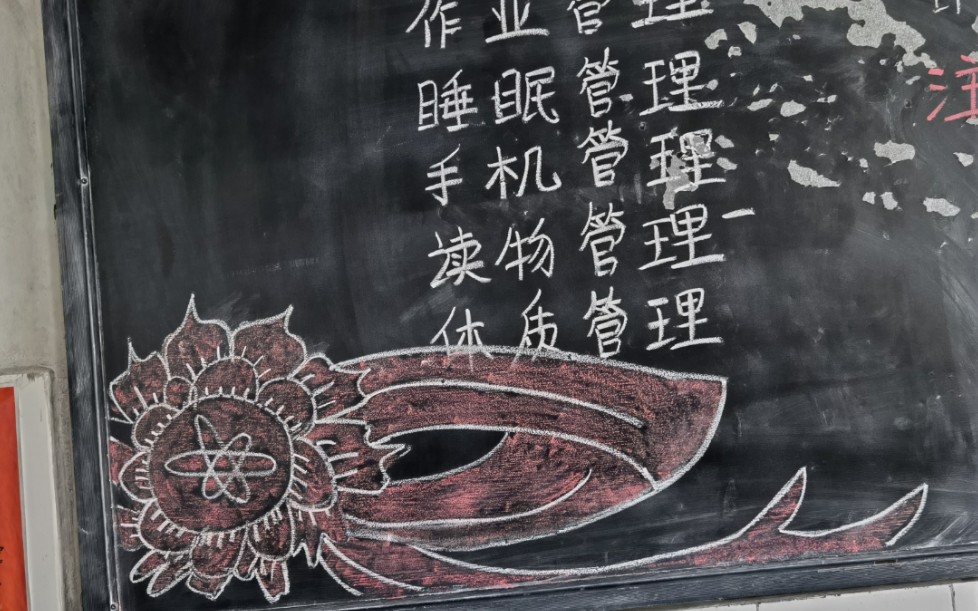 作业管理
睡眠管理
手机管理
读物管理
体质管理
注